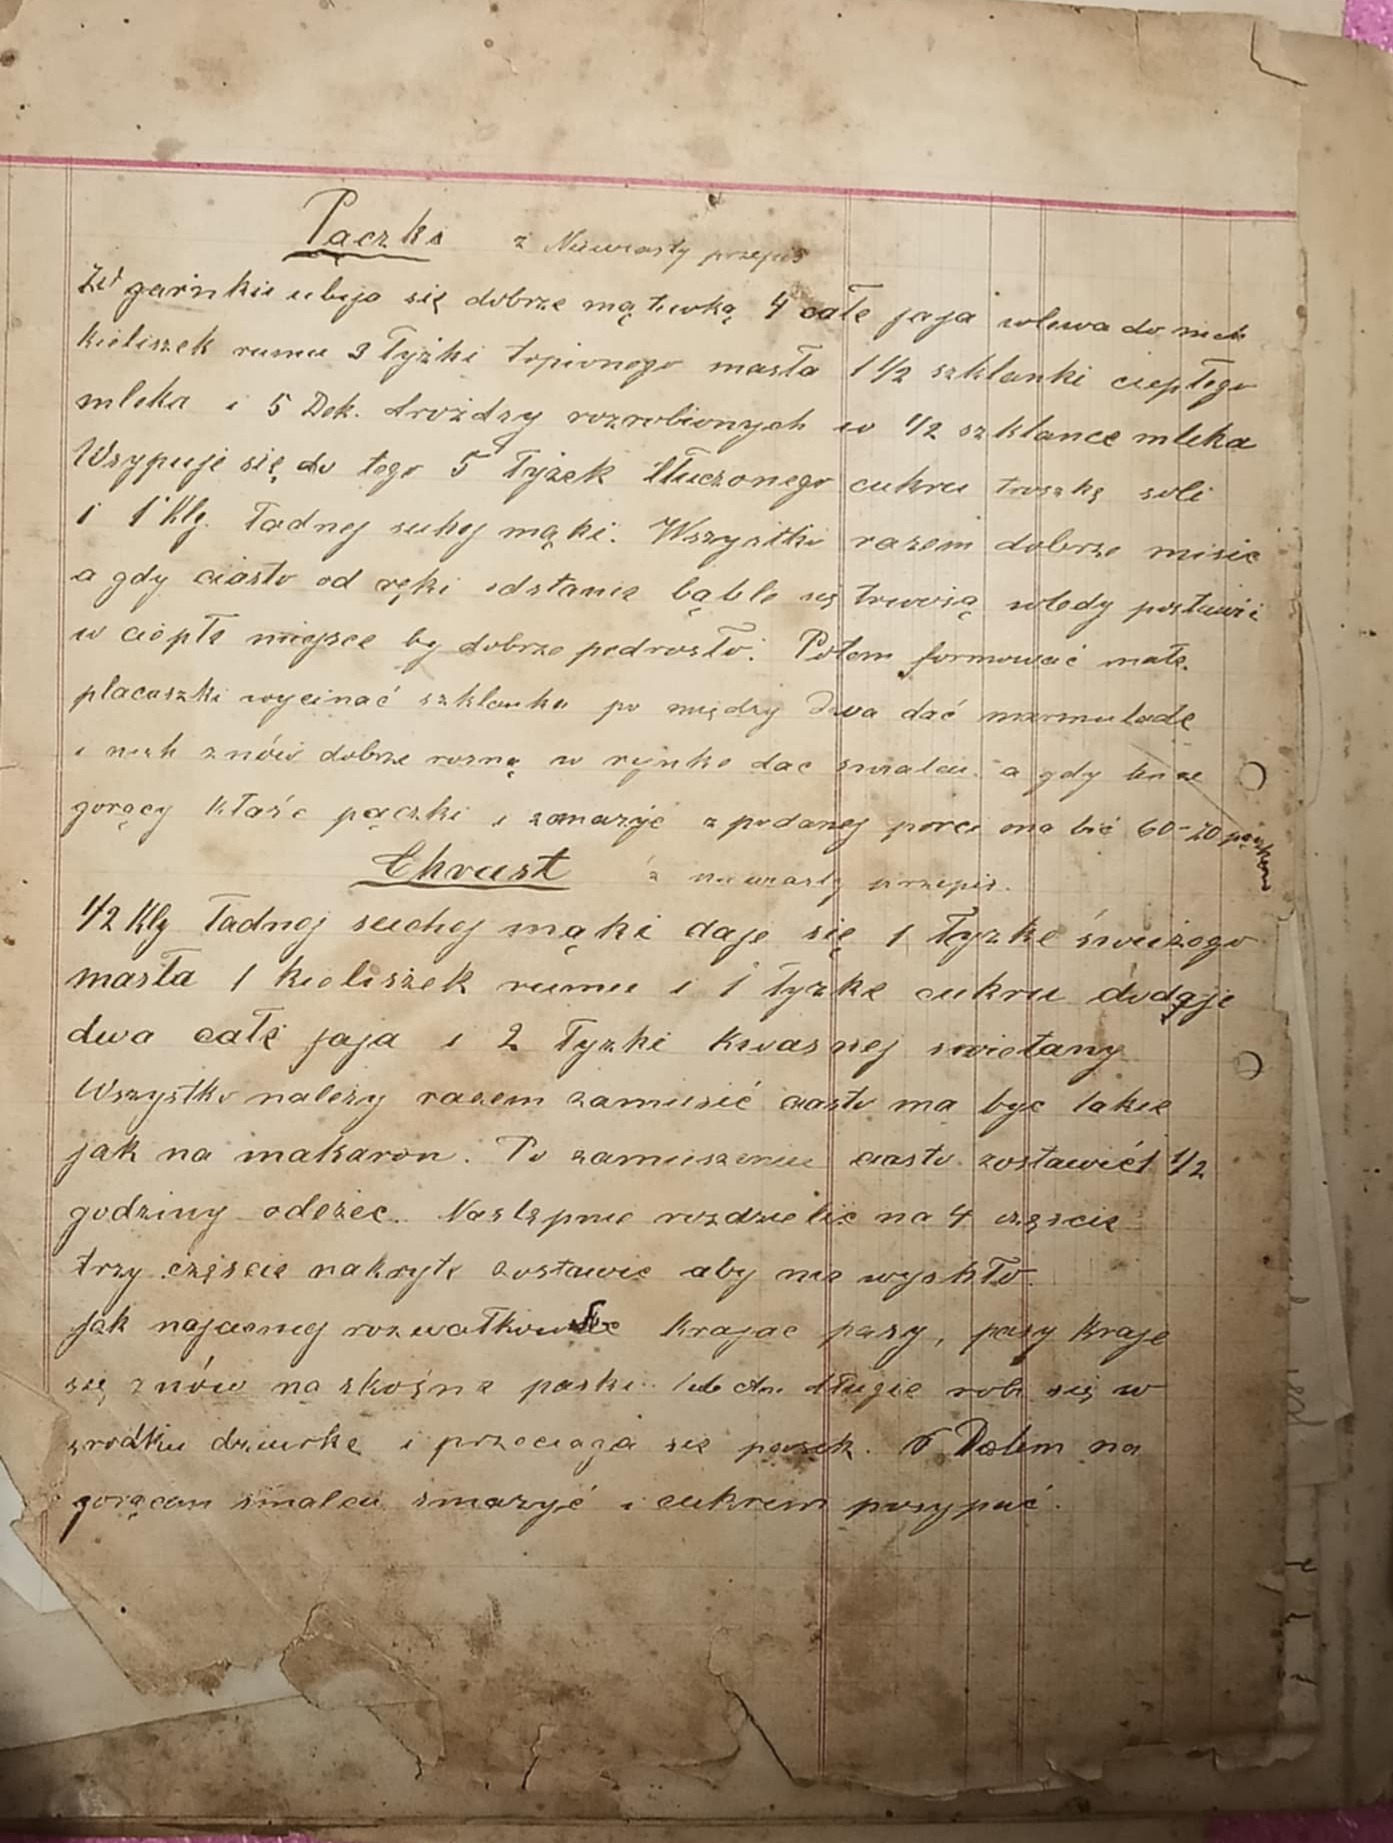 Pączki z Niewiasty przepis
W garnku ubija się dobrze mątewką 4 całe jaja wlewa do nich
kieliszek rumu 3 łyżki topionego masła 1 1/2 szklanki ciepłego
mleka i 5 Dek. drożdży rozrobionych w 1/2 szklance mleka
Wsypuje się do tego 5 łyżek tłuczonego cukru troszkę soli
i 1 Klg. ładnej suhej mąki. Wszystko razem dobrze misić
a gdy ciasto od ręki odstanie bąble się tworzą wtedy postawić
w ciepłe miejsce by dobrze podrosło. Potem formować małe
placuszki wycinać szklanką po między dwa dać marmuladę
i niech znów dobrze rosną w rynke dac smalcu a gdy będzie
gorący kłaść pączki i smażyc z podanej porci ma bić 60-70 pączków
Chrust z niewiasty przepis.
1/2 Klg ładnej suchej mąki daje się 1 łyzke świeżego
masła 1 kieliszek rumu i 1 łyzke cukru dodaje
dwa całe jaja i 2 łyzki kwasnej smietany
Wszystko nalezy razem zamiesić ciasto ma byc takie
jak na makaron. Po zamieszeniu ciasto zostawić 1/2
godziny odezec. Następnie rozdzielic na 4 częscie
trzy częscie nakryte zostawic aby nie wyskło.
Jak najcieniej rozwałkowac krajac pasy, pasy kraje
się znów na skośne paski długie robi się w
srodku dziurkę i przeciąga się pasek. Potem na
gorącem smalcu smazyć i cukrem posypać.